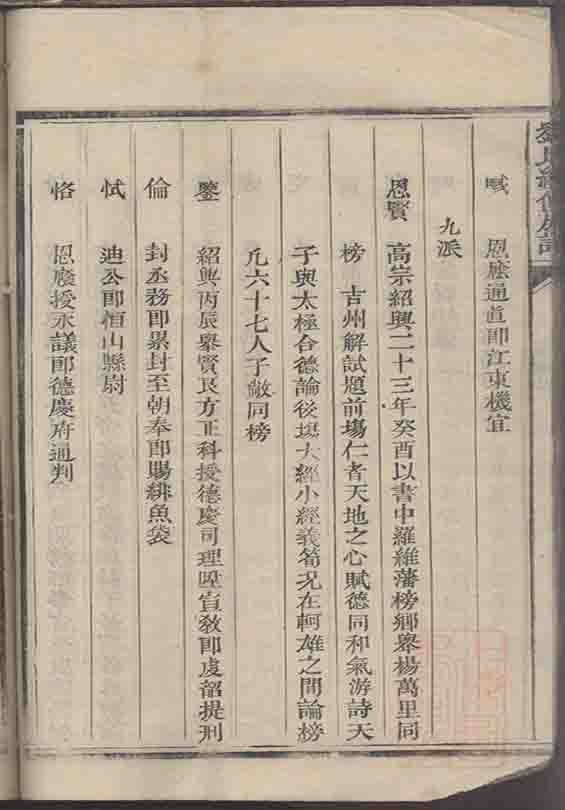 賦 恩廕通直郎江東機宜
九派
恩賢 高宗紹興二十三年癸酉以書中羅維藩榜鄉舉楊萬里同
榜 吉州解試題前場仁者天地之心賦德同和氣游詩天
子與太極合德論後場大經小經義荀況在軻雄之間論榜
凡六十七人子敵同榜
鑒 紹興丙辰舉賢良方正科授德慶司理陞宣教郎虔韶提刑
倫 封丞務郎累封至朝奉郎賜緋魚袋
忯 迪公郎恒山縣尉
恪 恩廕授承議郎德慶府通判